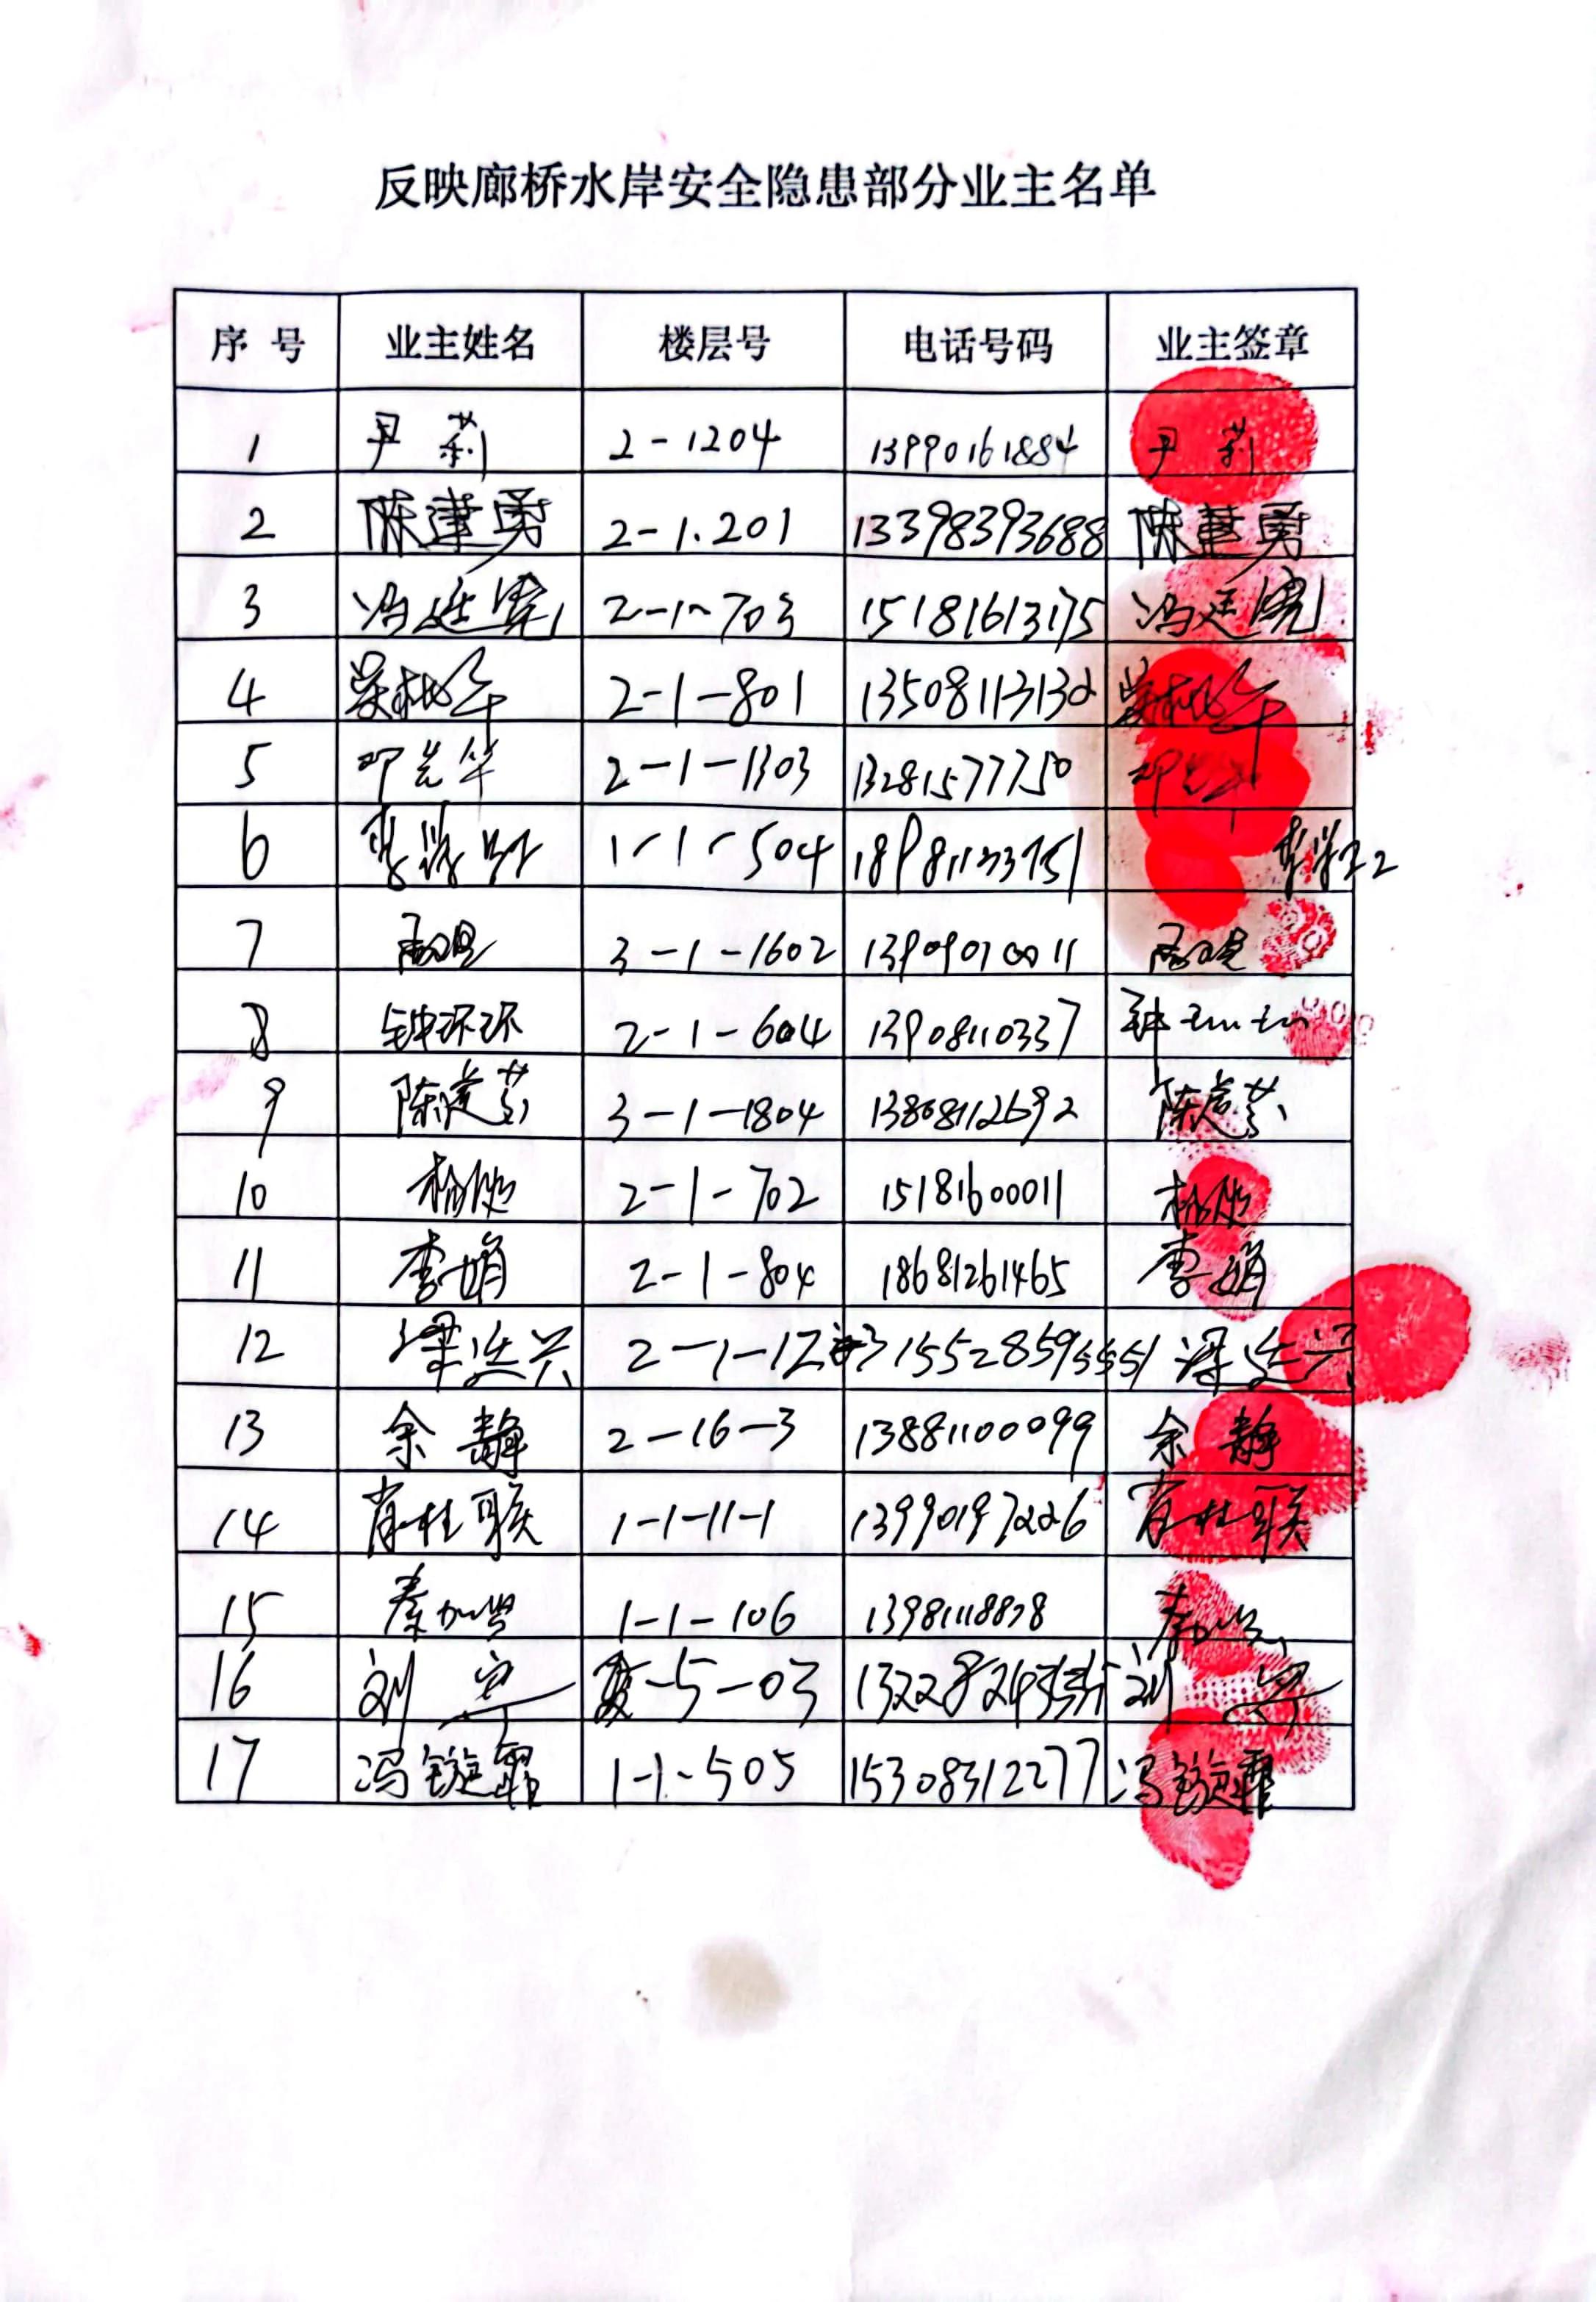 反映廊桥水岸安全隐患部分业主名单
序 号 业主姓名 楼层号 电话号码 业主签章
1 尹 莉 2-1204 13990161884 尹 莉
2 陈建勇 2-1.201 13398393688 陈建勇
3 冯廷 2-1-703 15181613175 冯廷
4 2-1-801 13508113132
5 邓光华 2-1-1303 13281577750 邓光华
6 李 1-1-504 李
7 3-1-1602 13909010011
8 钟环环 2-1-604 13908110337 钟环环
9 陈 3-1-1804 13808112692 陈
10 杨俊 2-1-702 15181600011 杨俊
11 李娟 2-1-804 18681261465 李娟
12 梁廷兴 梁廷兴
13 余 静 2-16-3 13881100099 余 静
14 肖桂联 1-1-11-1 13990197226 肖桂联
15 秦加 1-1-106 秦加
16 刘 宁 -5-03 刘 宁
17 冯镟霏 1-1-505 15308312277 冯镟霏